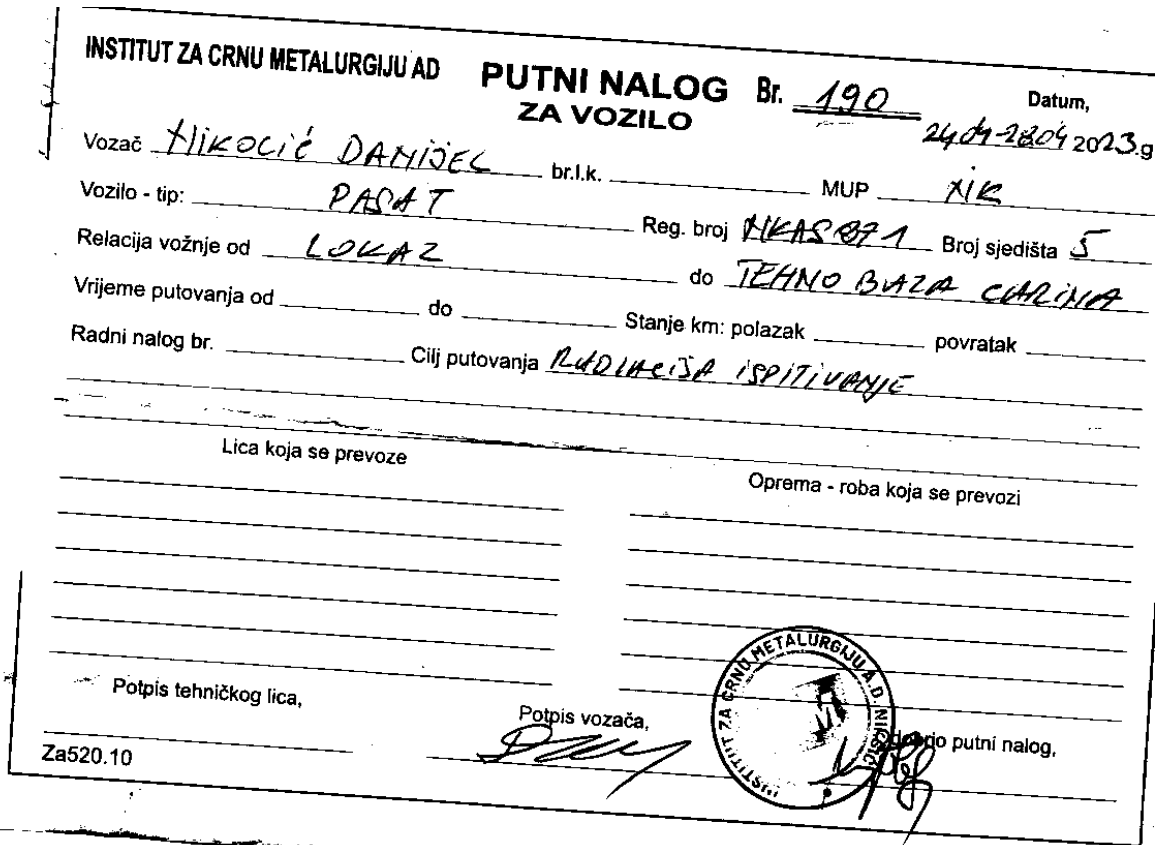 INSTITUT ZA CRNU METALURGIJU AD PUTNI NALOG Br. 190 Datum,
ZA VOZILO 24.04-28.04 2023.g
Vozač Nikolić DANIJEL br.l.k. MUP NK
Vozilo - tip: PASAT Reg. broj NKAS871 Broj sjedišta 5
Relacija vožnje od LOKAL do TEHNO BAZA CARINA
Vrijeme putovanja od do Stanje km: polazak povratak
Radni nalog br. Cilj putovanja RADIACIJA ISPITIVANJE
Lica koja se prevoze Oprema - roba koja se prevozi
Potpis tehničkog lica, Potpis vozača, putni nalog,
Za520.10
INSTITUT ZA CRNU METALURGIJU A.D. NIKŠIĆ